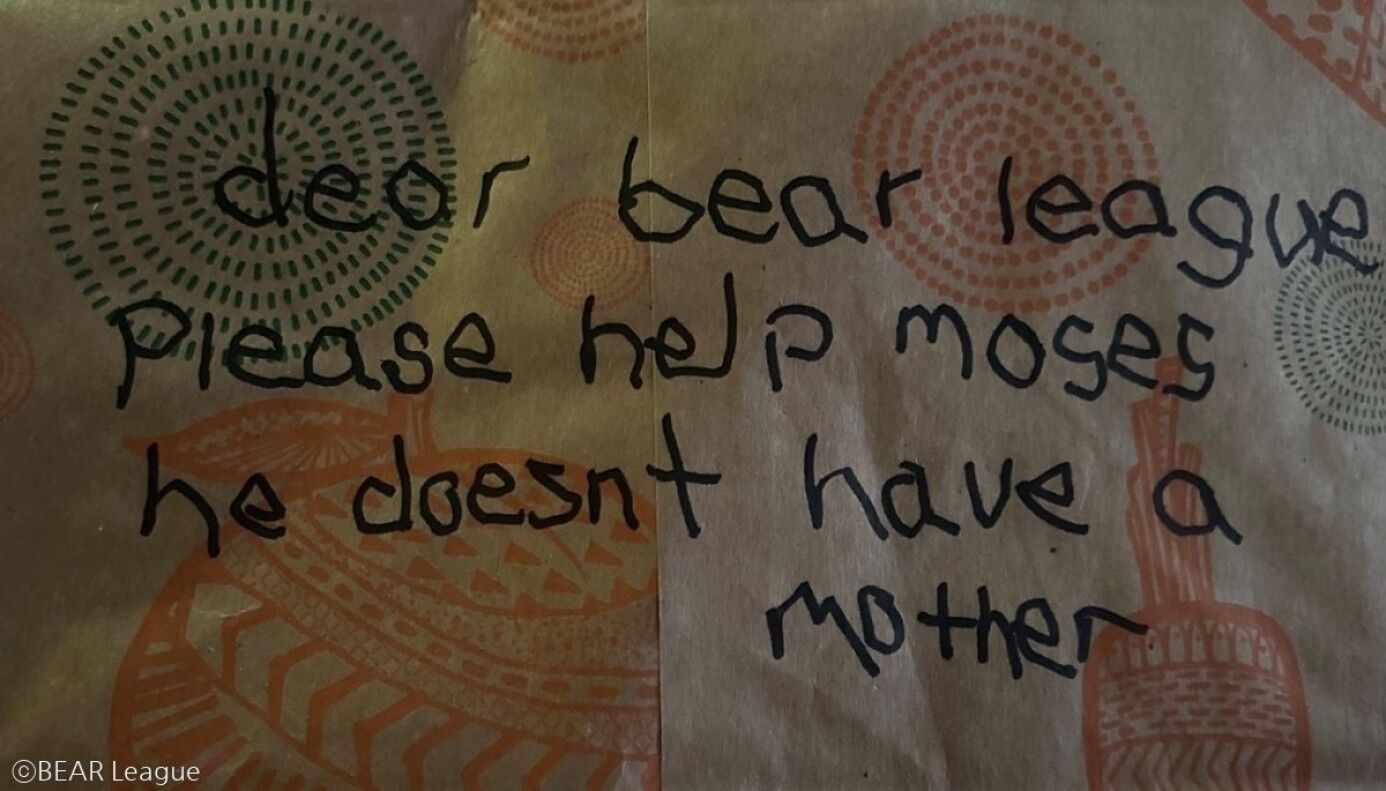 dear bear league
Please help moses
he doesnt have a
mother
©BEAR League